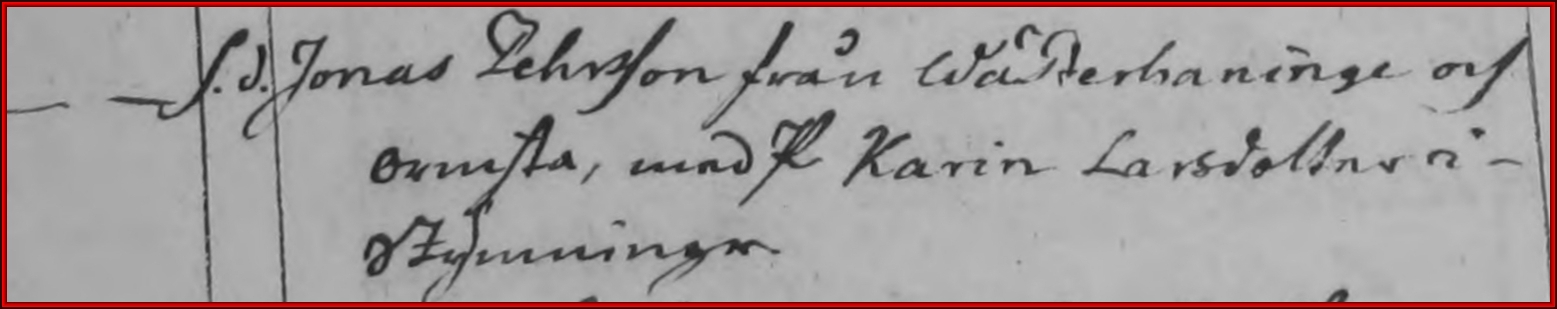 S. d. Jonas Pehrsson från Wästerhaninge och
Ormsta, med P Karin Larsdotter i -
Stymninge